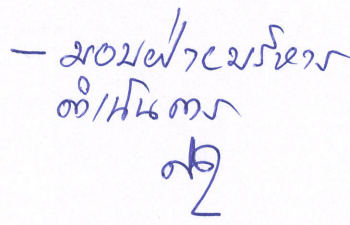 - มอบฝ่ายบริหาร
ดำเนินการ